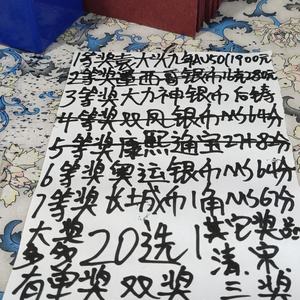 1等奖袁大头九年AU50(1900元
2等奖墨西哥银币1盎280元
3等奖大力神银币后铸
4等奖双凤银币MS64分
5等奖康熙通宝2H82分
6等奖奥运银币MS64分
7等奖长城币1角MS67分
大奖多多20选1其它奖品清.宋
有单奖双奖三奖